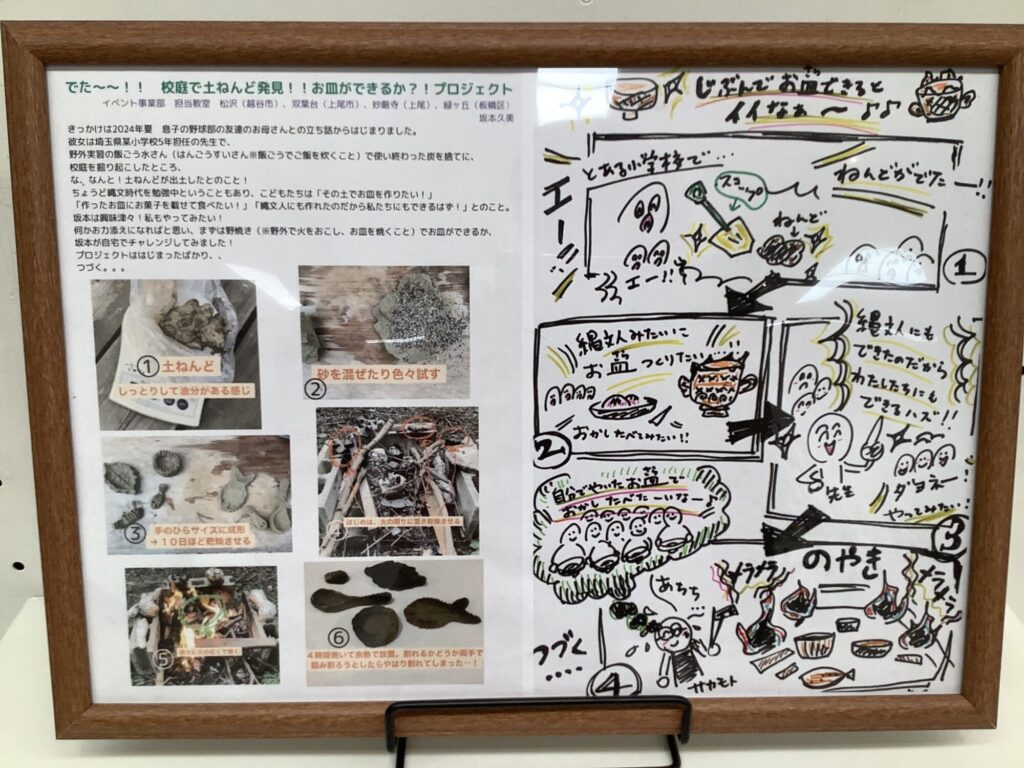 でた～～！！　校庭で土ねんど発見！！お皿ができるか？！プロジェクト
イベント事業部　担当教室　松沢（越谷市）、双葉台（上尾市）、妙厳寺（上尾）、緑ヶ丘（板橋区）
坂本久美
きっかけは2024年夏　息子の野球部の友達のお母さんとの立ち話からはじまりました。
彼女は埼玉県某小学校5年担任の先生で、
野外実習の飯ごう水さん（はんごうすいさん※飯ごうでご飯を炊くこと）で使い終わった炭を捨てに、
校庭を掘り起こしたところ、
な、なんと！土ねんどが出土したとのこと！
ちょうど縄文時代を勉強中ということもあり、こどもたちは「その土でお皿を作りたい！」
「作ったお皿にお菓子を載せて食べたい！」「縄文人にも作れたのだから私たちにもできるはず！」とのこと。
坂本は興味津々！私もやってみたい！
何かお力添えになればと思い、まずは野焼き（※野外で火をおこし、お皿を焼くこと）でお皿ができるか、
坂本が自宅でチャレンジしてみました！
プロジェクトははじまったばかり、、
つづく。。。
①土ねんど
しっとりして油分がある感じ
②
砂を混ぜたり色々試す
③
手のひらサイズに成形
→１０日ほど乾燥させる
はじめは、火の周りに置き乾燥させる
⑤
⑥
４時間焼いて余熱で放置。割れるかどうか両手で
掴み割ろうとしたらやはり割れてしまった‥！
じぶんでお皿できると
イイなぁ～♪♪
とある小学校で…
エー!!
スコップ
ねんど
ねんどがでたー!!
エー!!
1
縄文人みたいに
お皿つくりたい…
おかしたべてみたい!!
2
縄文人にも
できたのだから
わたしたちにも
できるハズ!!
先生
ダヨネー
やってみたい
3
自分でやいたお皿で
おかしたべたーいなー
のやき
メラメラ
メラメラ
あちち
サカモト
つづく
4